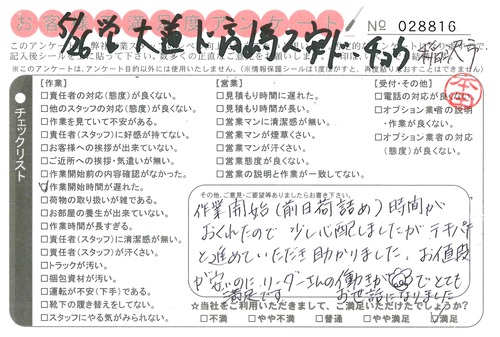 お客様満足度アンケート
No 028816
【作業】
□責任者の対応(態度)が良くない。
□他のスタッフの対応(態度)が良くない。
□作業を見ていて不安がある。
□責任者(スタッフ)に好感が持てない。
□お客様への挨拶が出来ていない。
□ご近所への挨拶・気遣いが無い。
□作業開始前の内容確認がなかった。
☑作業開始時間が遅れた。
□荷物の取り扱いが雑である。
□お部屋の養生が出来ていない。
□作業時間が長すぎる。
□責任者(スタッフ)に清潔感が無い。
□責任者(スタッフ)が汗くさい。
□トラックが汚い。
□梱包資材が汚い。
□運転が不安(下手)である。
□靴下の履き替えをしてない。
□スタッフにやる気がみられない。
【営業】
□見積もり時間に遅れた。
□見積もり時間が長い。
□営業マンに清潔感が無い。
□営業マンが煙草くさい。
□営業マンが汗くさい。
□営業態度が良くない。
□営業の説明と作業が一致してない。
【受付・その他】
□電話の対応が良くない。
□オプション業者の説明
・作業が良くない。
□オプション業者の対応
(態度)が良くない。
チェックリスト
その他、ご意見・ご要望等ありましたらお書き下さい。
作業開始(前日荷詰め)時間が
おくれたので 少し心配しましたが テキパキ
と進めていただき助かりました。お値段
が安いのに リーダーさんの働きが でとても
満足です お世話になりました
☆当社をご利用いただきまして、ご満足いただけたでしょうか?
□不満 □やや不満 □普通 □やや満足 ☑満足